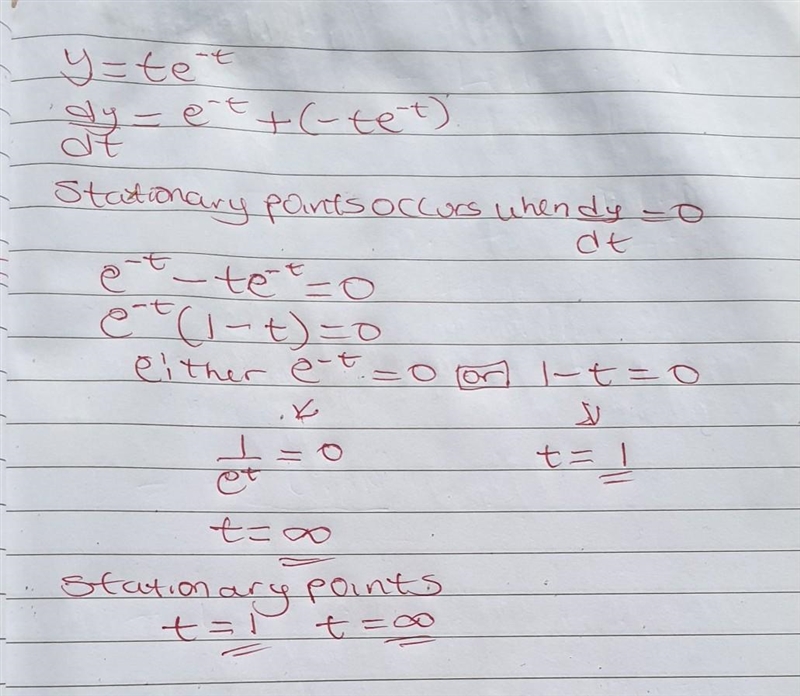 y = te^{-t}
dy/dt = e^{-t} + (-te^{-t})
Stationary points occurs when dy/dt = 0
e^{-t} - te^{-t} = 0
e^{-t}(1 - t) = 0
either e^{-t} = 0 or 1 - t = 0
1/e^t = 0 t = 1
t = ∞
Stationary points
t = 1 t = ∞